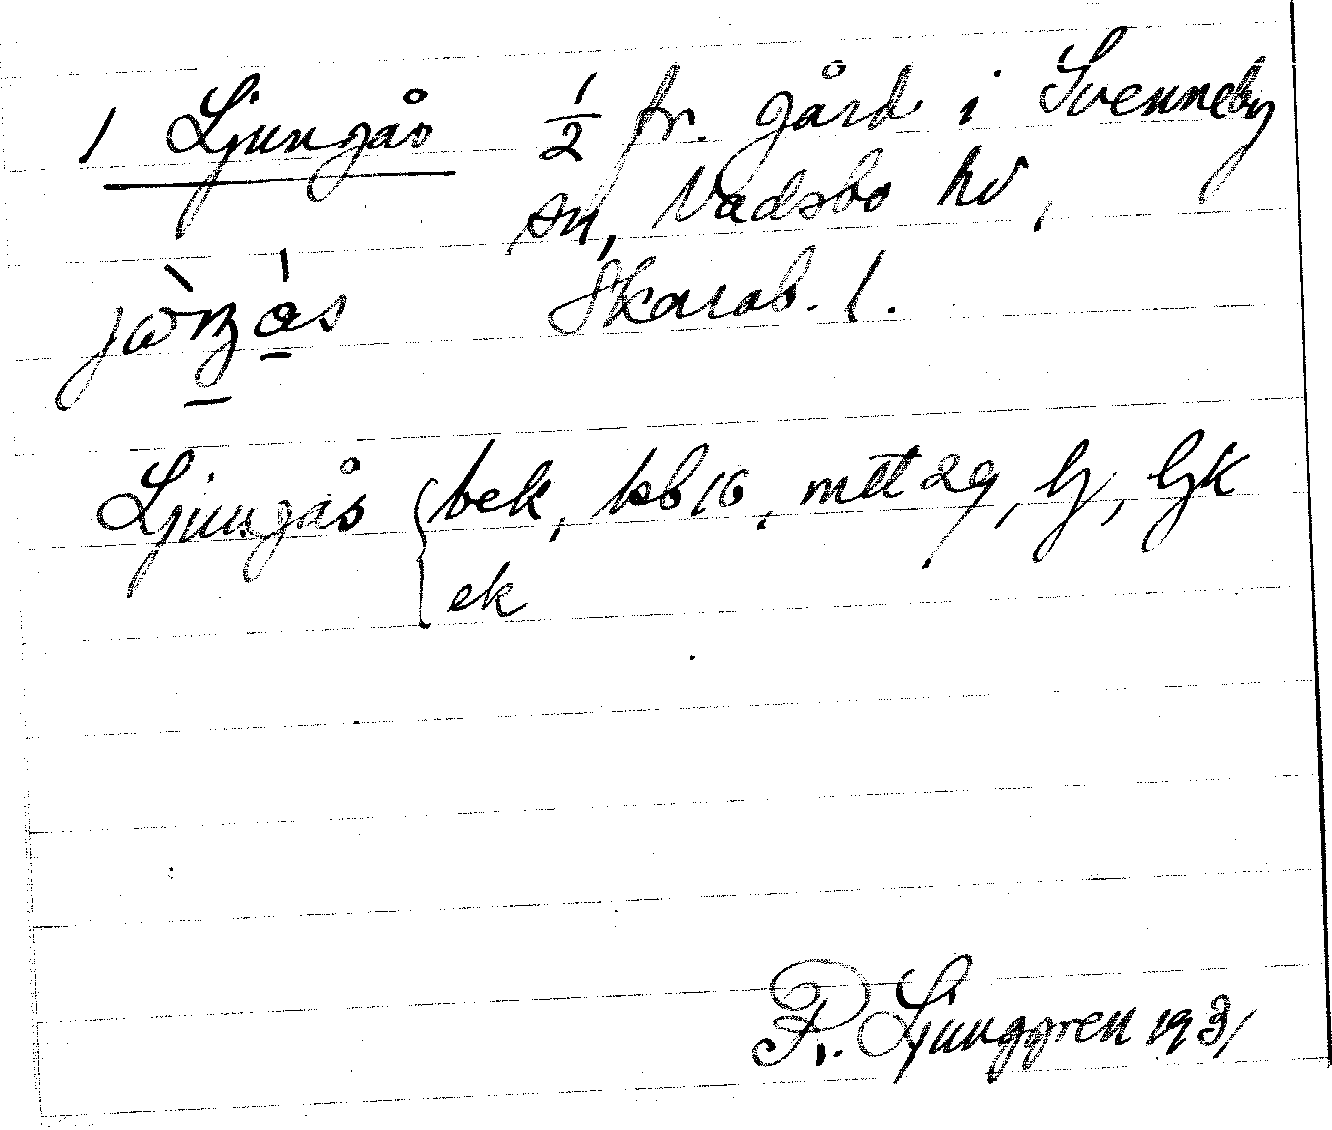 1 Ljungås ½ fr. gård i Svenneby
sn, Vadsbo hd,
Skarab. l.
Ljungås { bek, kb 16, mtt 29, lj, ljk
ek
R. Ljunggren 1931